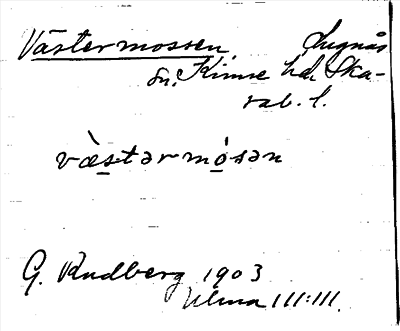 Västermossen, Lugnås
sn. Kinne hd. Ska-
rab. l.
væ̀stərmósən
G. Rudberg 1903
Ulma 111:111.